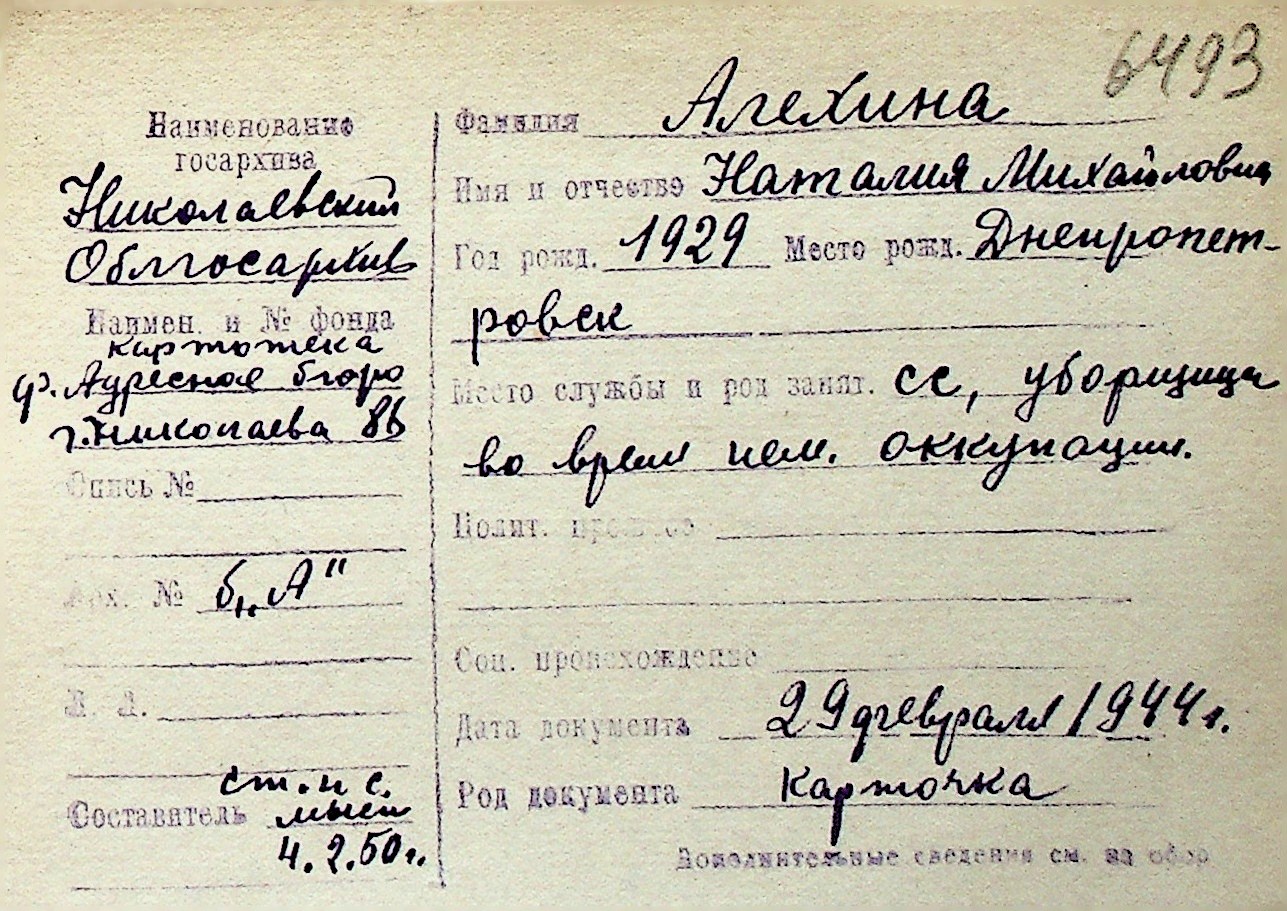 6493
Наименование
госархива
Николаевский
Облгосархив
Наимен. и № фонда
картотека
ф. Адресное бюро
г. Николаева 86
Опись №
Арх. № б„А"
Л. Л.
Составитель ст. н с.
4.2.50г.
Фамилия Алехина
Имя и отчество Наталия Михайловна
Год рожд. 1929 Место рожд. Днепропет-
ровск
Место службы и род занят. СС, уборщица
во время нем. оккупации.
Полит. прошлое
Соц. происхождение
Дата документа 29 февраля 1944 г.
Род документа Карточка
Дополнительные сведения см. на обор